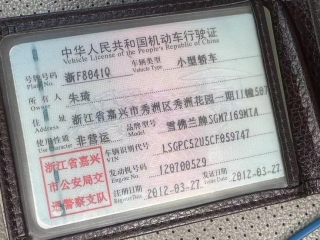 中华人民共和国机动车行驶证
Vehicle License of the People's Republic of China
号牌号码 Plate No. 浙F8041Q 车辆类型 Vehicle Type 小型轿车
所有人 Owner 朱琦
住址 Address 浙江省嘉兴市秀洲区秀洲花园一期11幢507
使用性质 Use Character 非营运 品牌型号 Model 雪佛兰牌SGM7169MTA
浙江省嘉兴市公安局交通警察支队
车辆识别代号 VIN LSGPC52U5CF059747
发动机号码 Engine No. 120700529
注册日期 Register Date 2012-03-27 发证日期 Issue Date 2012-03-27